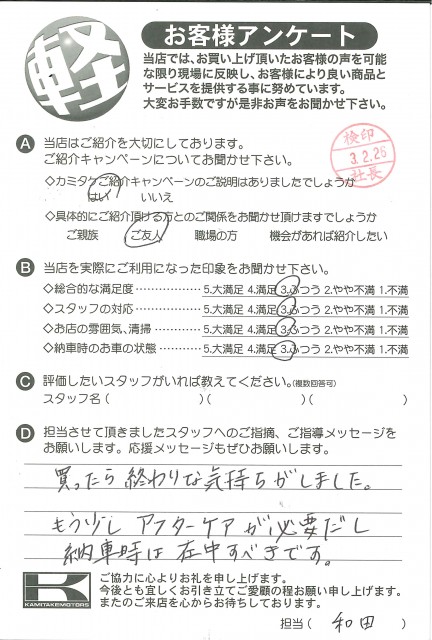 軽
お客様アンケート
当店では、お買い上げ頂いたお客様の声を可能
な限り現場に反映し、お客様により良い商品と
サービスを提供する事に努めています。
大変お手数ですが是非お声をお聞かせ下さい。
A 当店はご紹介を大切にしております。
ご紹介キャンペーンについてお聞かせ下さい。
検印
3.2.26
社長
◇カミタケご紹介キャンペーンのご説明はありましたでしょうか
はい いいえ
◇具体的にご紹介頂ける方とのご関係をお聞かせ頂けますでしょうか
ご親族 ご友人 職場の方 機会があれば紹介したい
B 当店を実際にご利用になった印象をお聞かせ下さい。
◇総合的な満足度 5.大満足 4.満足 3.ふつう 2.やや不満 1.不満
◇スタッフの対応 5.大満足 4.満足 3.ふつう 2.やや不満 1.不満
◇お店の雰囲気、清掃 5.大満足 4.満足 3.ふつう 2.やや不満 1.不満
◇納車時のお車の状態 5.大満足 4.満足 3.ふつう 2.やや不満 1.不満
C 評価したいスタッフがいれば教えてください。(複数回答可)
スタッフ名( )( )( )
D 担当させて頂きましたスタッフへのご指摘、ご指導メッセージを
お願いします。応援メッセージもぜひお願いします。
買ったら終わりな気持ちがしました。
もう少しアフターケアが必要だし
納車時は在中すべきです。
K
KAMITAKEMOTORS
ご協力に心よりお礼を申し上げます。
今後とも宜しくお引き立てご愛顧の程お願い申し上げます。
またのご来店を心からお待ちしております。
担当( 和田 )